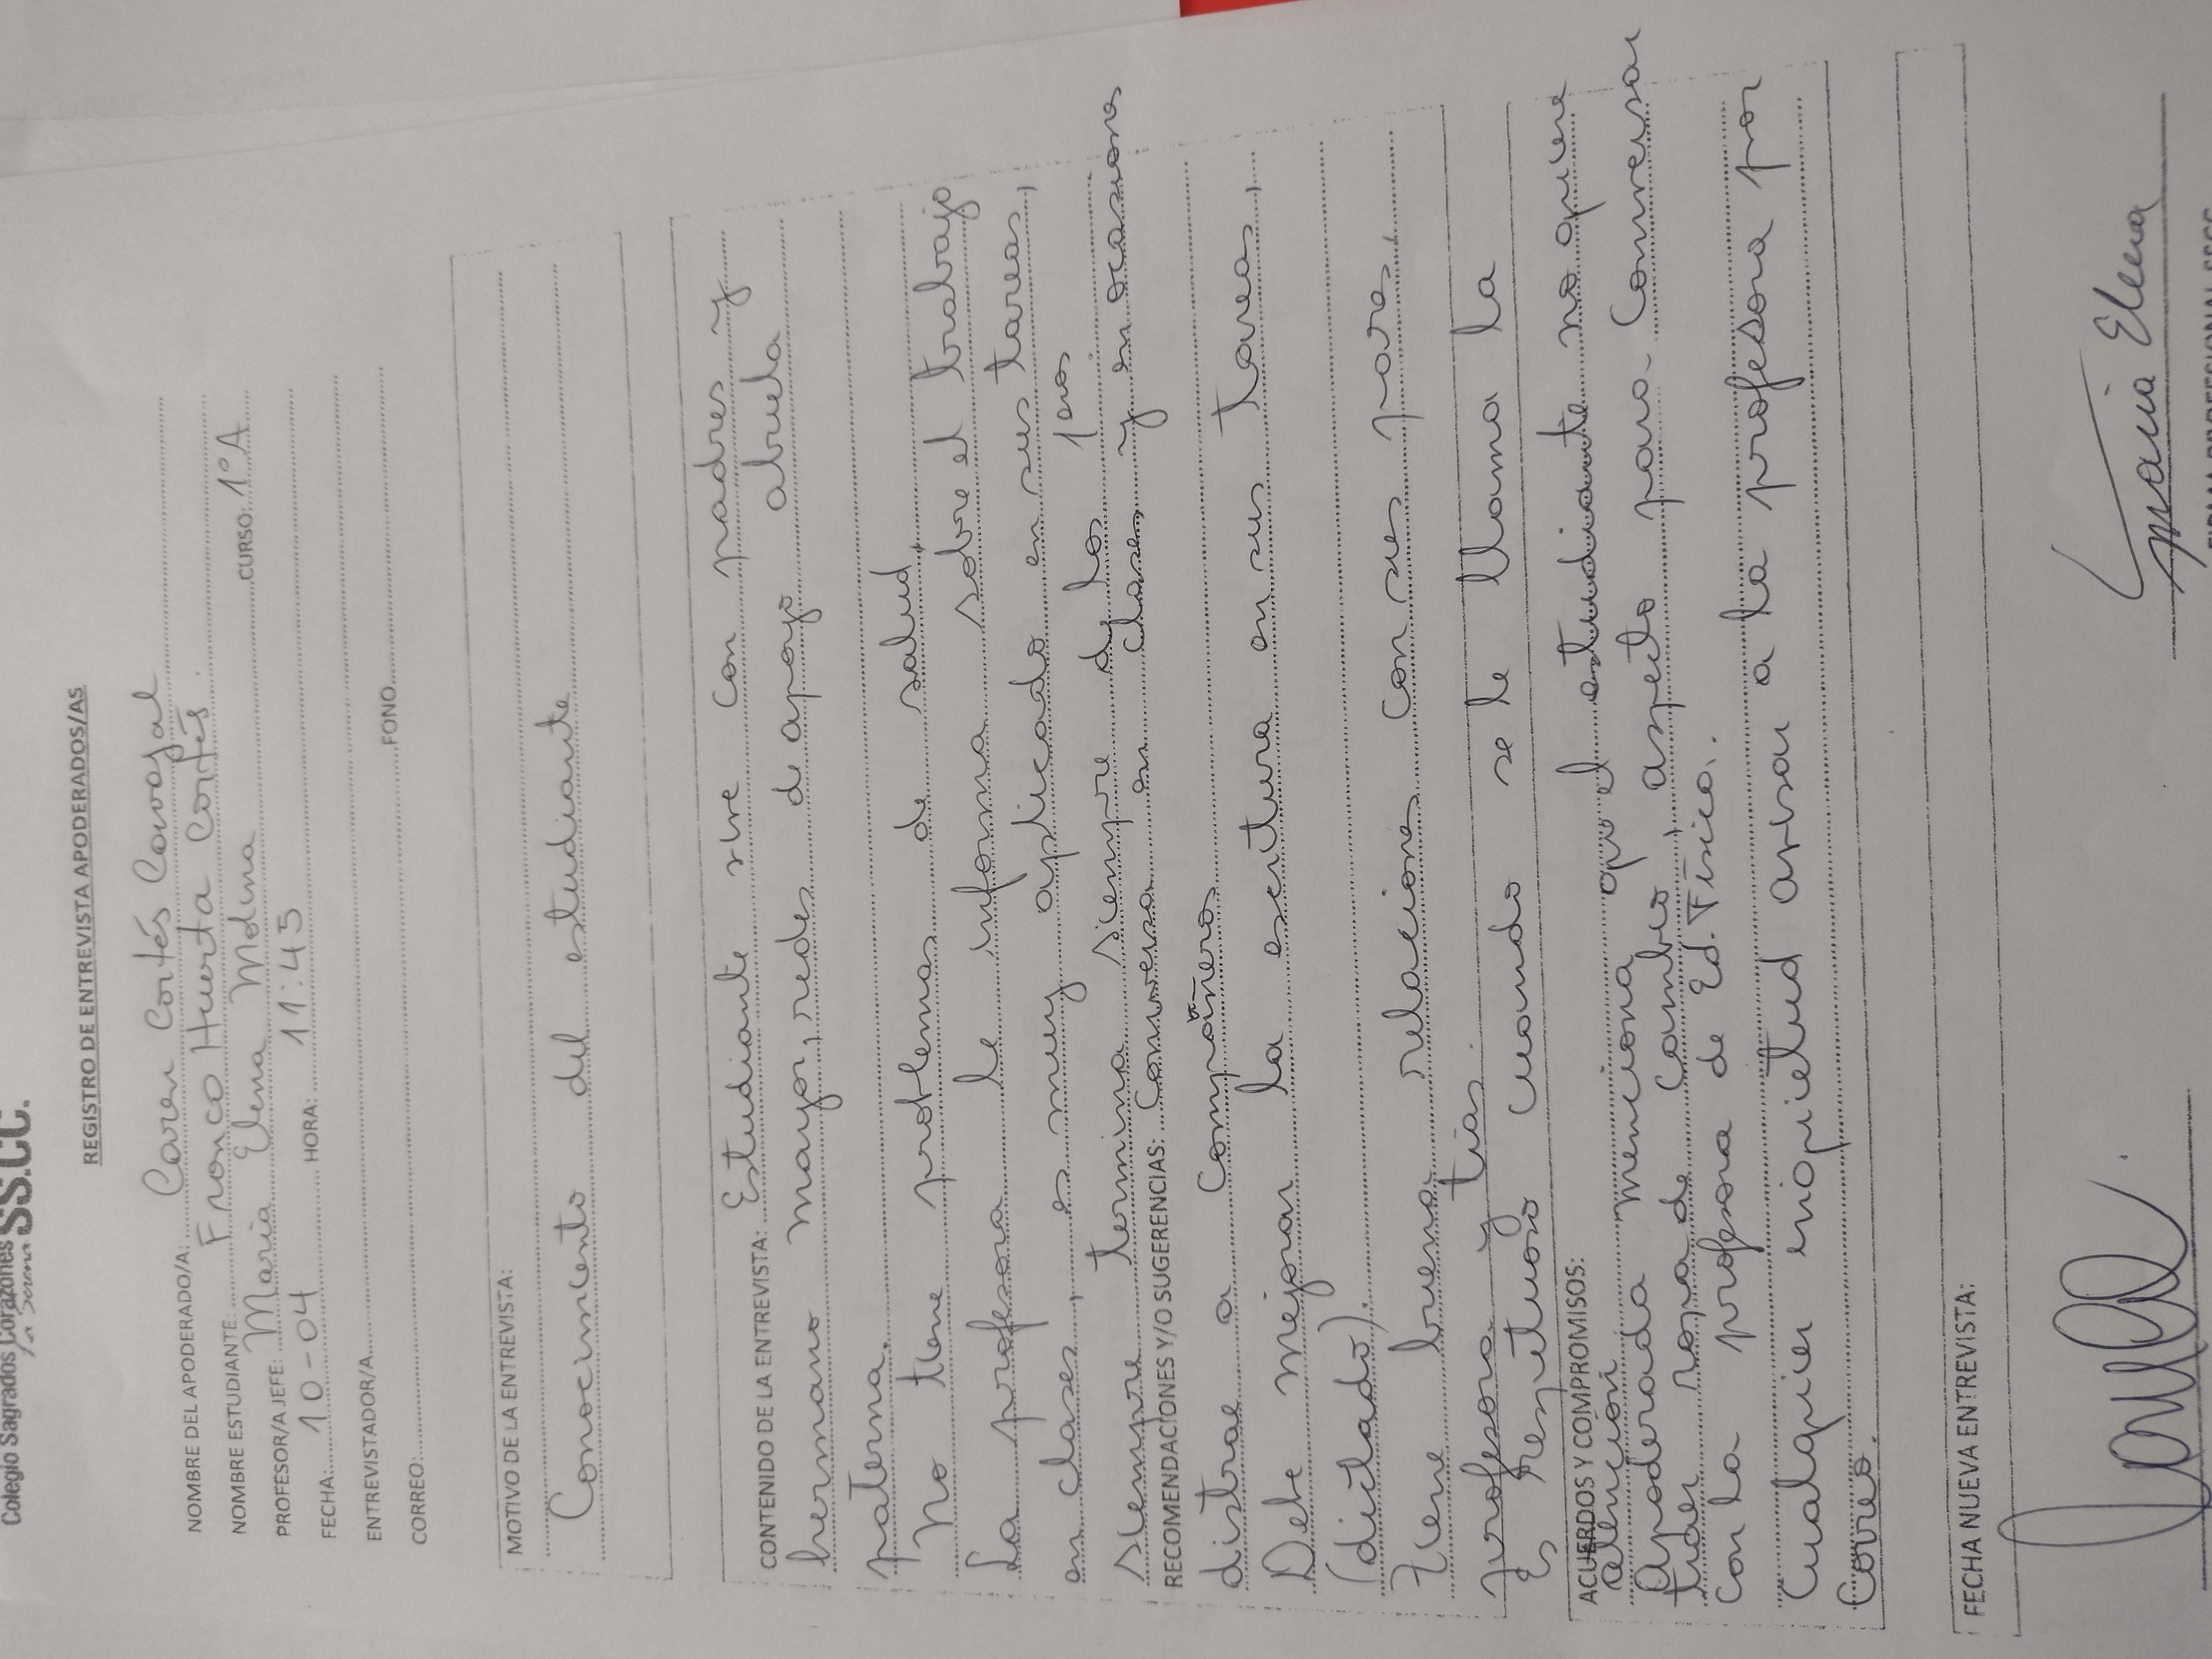 Colegio Sagrados Corazones SS.CC.
La Serena
REGISTRO DE ENTREVISTA APODERADOS/AS
NOMBRE DEL APODERADO/A: Caren Cortés Carvajal
NOMBRE ESTUDIANTE: Franco Huerta Cortés.
PROFESOR/A JEFE: Maria Elena Molina CURSO: 1°A
FECHA: 10-04 HORA: 11:45
ENTREVISTADOR/A
CORREO: FONO
MOTIVO DE LA ENTREVISTA:
Conocimiento del estudiante
CONTENIDO DE LA ENTREVISTA: Estudiante vive con padres y
hermano mayor, redes de apoyo abuela
paterna.
No tiene problemas de salud.
La profesora le informa sobre el trabajo
en clases, es muy aplicado en sus tareas,
siempre termina siempre de los 1eros
RECOMENDACIONES Y/O SUGERENCIAS: Conversa en clases y en ocasiones
distrae a compañeros
Debe mejorar la escritura en sus tareas,
(dictado).
Tiene buenas relaciones con sus pares,
profesora y tias
Es respetuoso cuando se le llama la
ACUERDOS Y COMPROMISOS:
atención
Apoderada menciona que el estudiante no quiere
traer ropa de cambio, aspecto para conversar
con la profesora de Ed. Física.
Cualquier inquietud avisar a la profesora por
Correo.
FECHA NUEVA ENTREVISTA:
Maria Elena